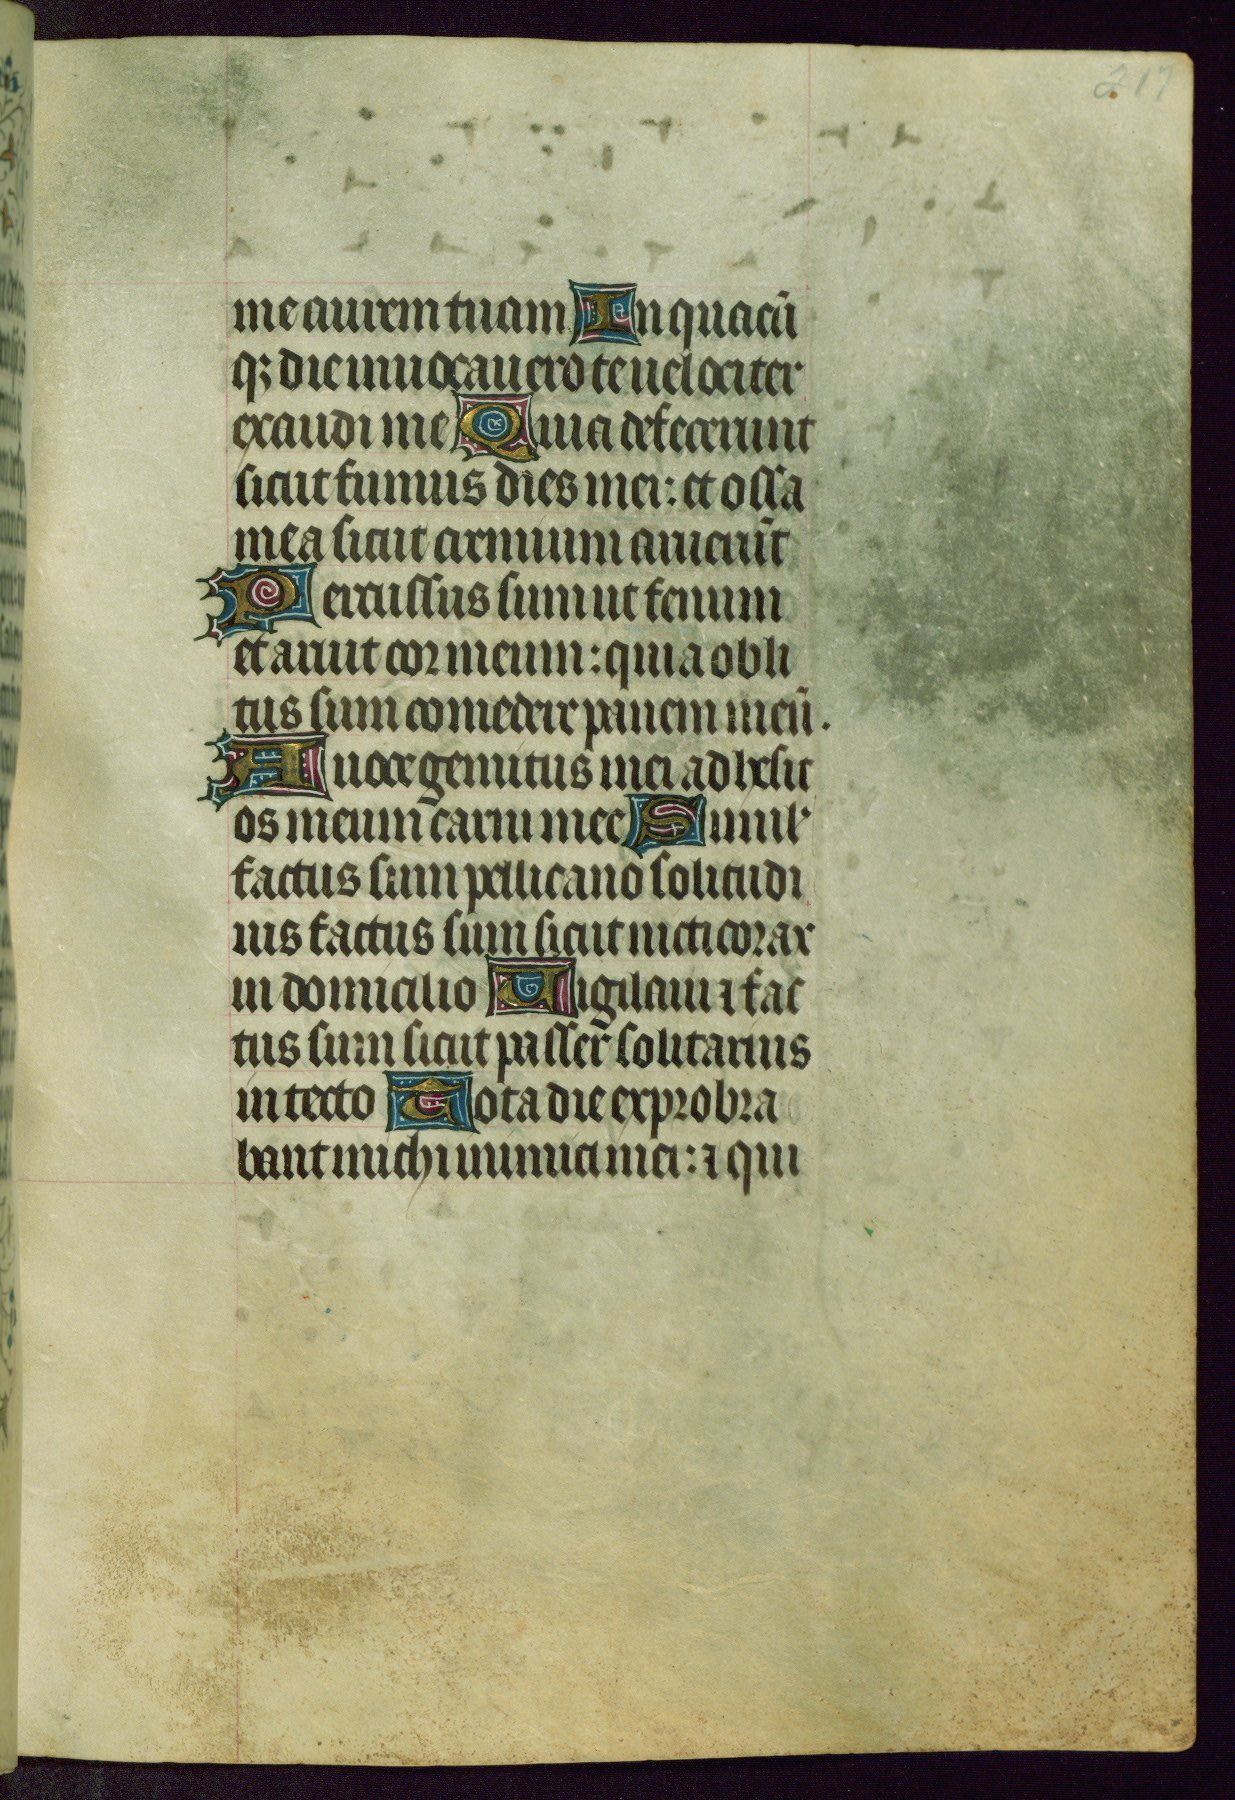 217
me aurem tuam In quacū
qꝫ die inuocauero te uelociter
exaudi me Quia defecerunt
sicut fumus dies mei: et ossa
mea sicut cremium aruerūt
Percussus sum ut fenum
et aruit cor meum: quia obli
tus sum comedere panem meū.
A uoce gemitus mei adhesit
os meum carni mee Simil'
factus sum pellicano solitudi
nis factus sum sicut nicticorax
in domicilio Uigilaui ⁊ fac
tus sum sicut passer solitarius
in tecto Tota die exprobra
bant michi inimici mei: ⁊ qui